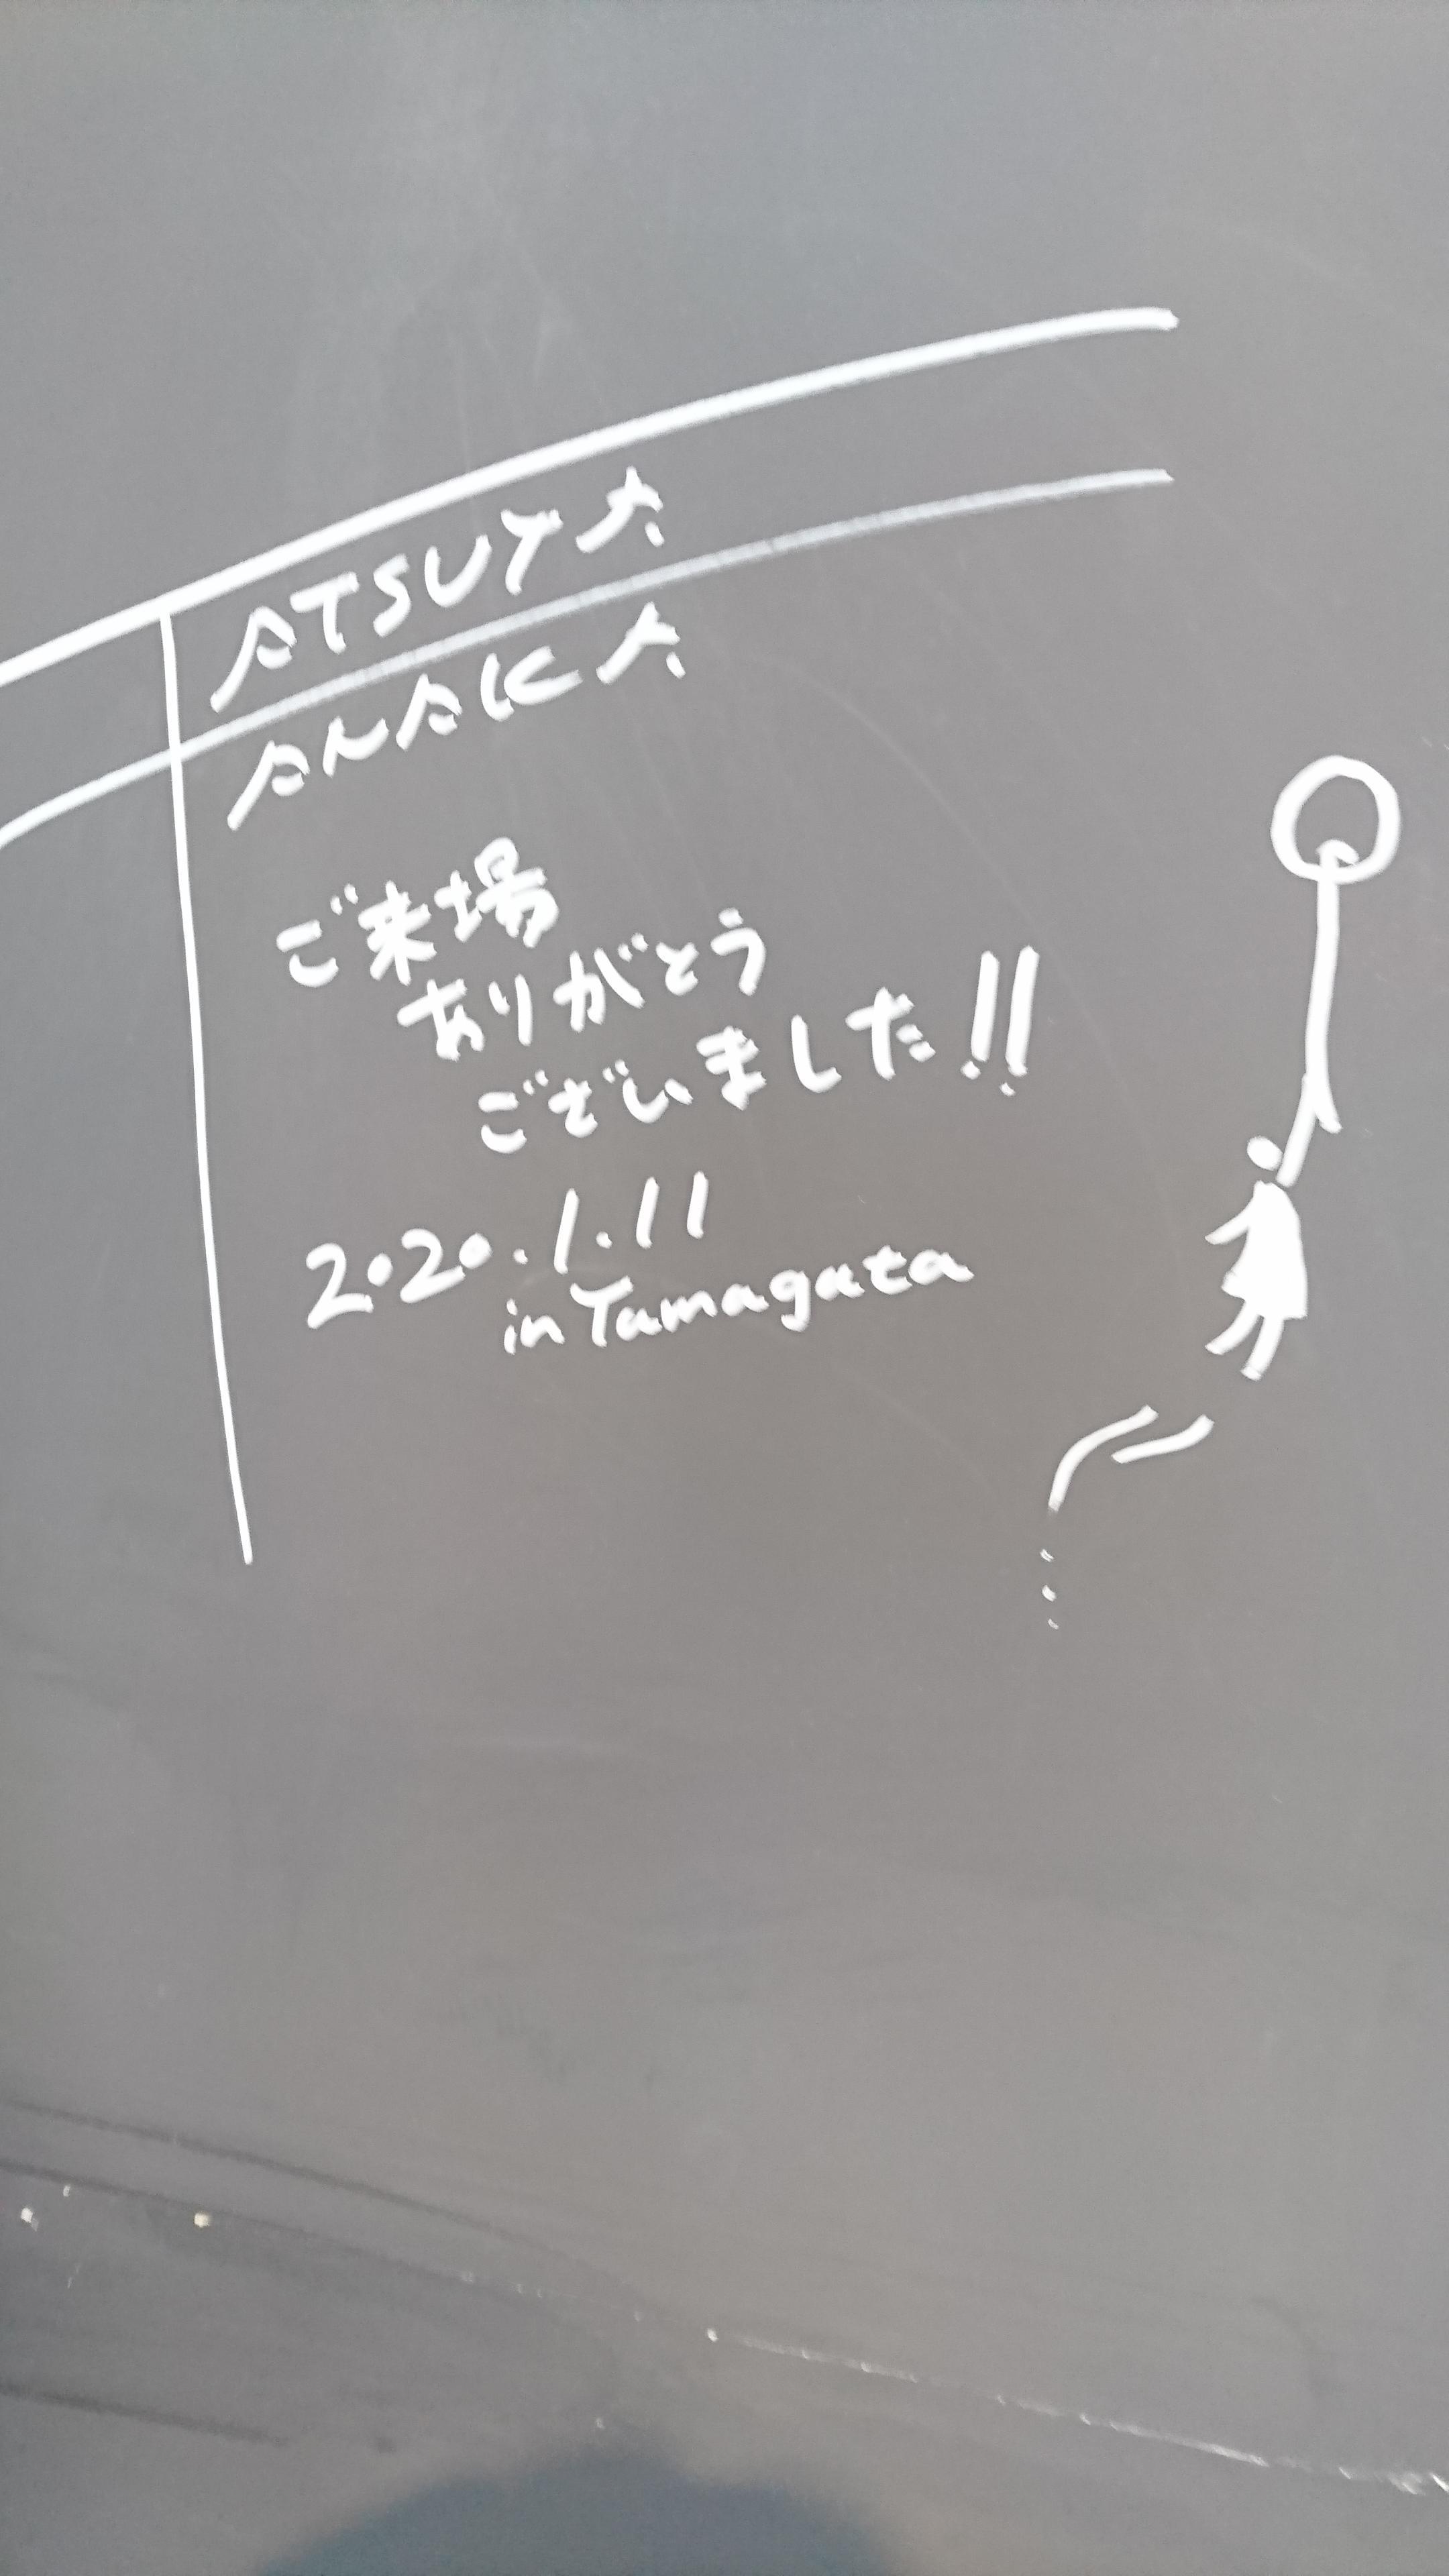 ATSUYA
ANAKA
ご来場
ありがとう
ございました!!
2020.1.11
in Yamagata